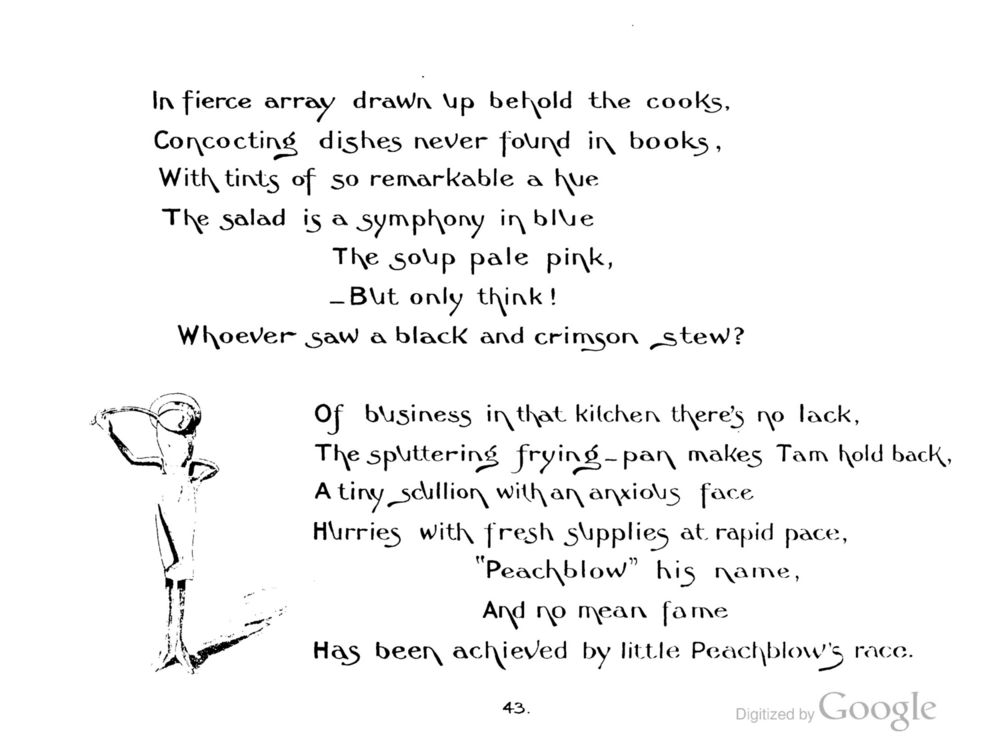 In fierce array drawn up behold the cooks,
Concocting dishes never found in books,
With tints of so remarkable a hue
The salad is a symphony in blue
The soup pale pink,
—But only think!
Whoever saw a black and crimson stew?
Of business in that kitchen there's no lack,
The sputtering frying-pan makes Tam hold back,
A tiny scullion with an anxious face
Hurries with fresh supplies at rapid pace,
"Peachblow" his name,
And no mean fame
Has been achieved by little Peachblow's race.
43.
Digitized by Google